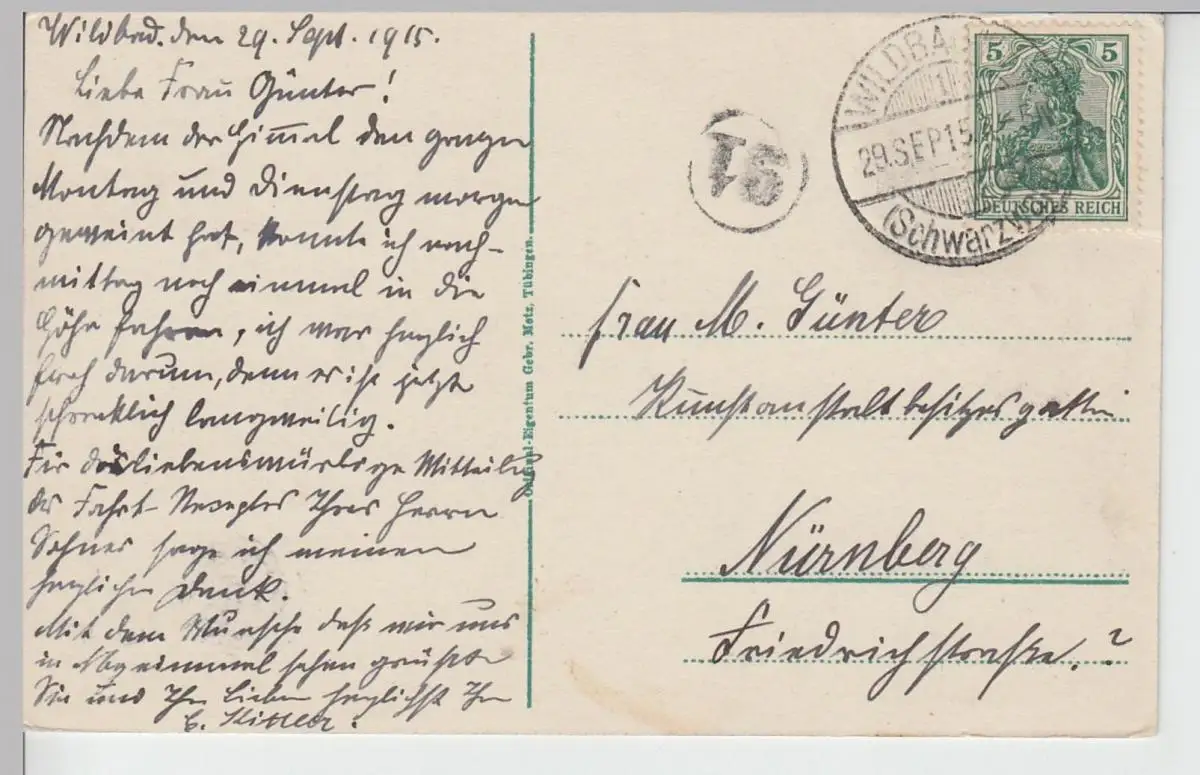 Wildbad. den 29. Sept. 1915.
Liebe Frau Günter!
Nachdem der Himmel den ganzen
Montag und Dienstag morgen
geweint hat, konnte ich nach-
mittag noch einmal in die
Höhe fahren, ich war herzlich
froh darum, denn er ist jetzt
schrecklich langweilig.
Für die liebenswürdige Mitteilung
des Fahrt-Rezeptes Ihres Herrn
Sohnes sage ich meinen
herzlichen Dank.
Mit dem Wunsche daß wir uns
in Nbg einmal sehen grüßt
Sie und Ihre Lieben herzlichst Ihre
Original-Eigentum Gebr. Metz, Tübingen.
91
WILDBAD
29.SEP.15
(Schwarzw
5 5
DEUTSCHES REICH
Frau M. Günter
Kunstanstaltbesitzersgattin
Nürnberg
Friedrichstraße.?